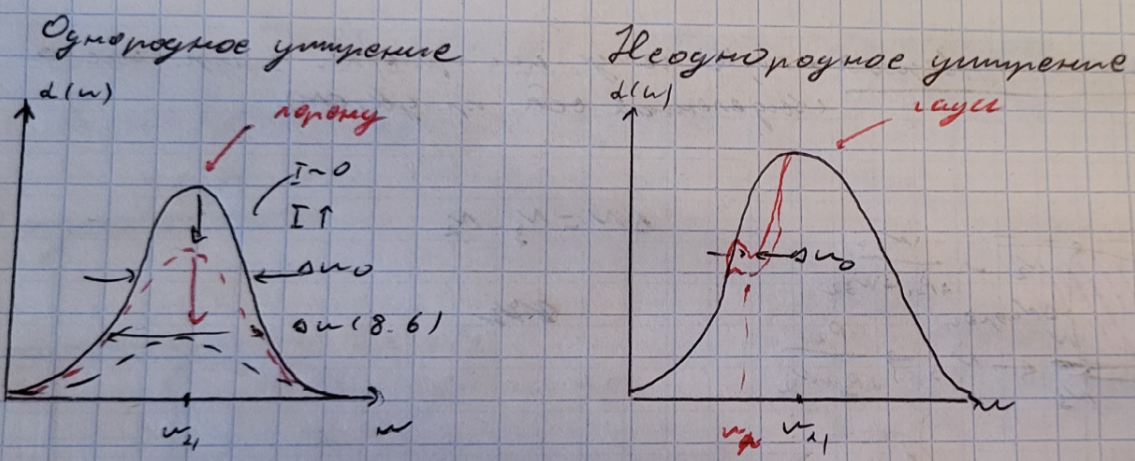 Однородное уширение
α(ω)
лоренц
I~0
I↑
Δω₀
Δω(8.6)
ω₂₁
ω
Неоднородное уширение
α(ω)
гаусс
Δω₀
ω₂₁
ω